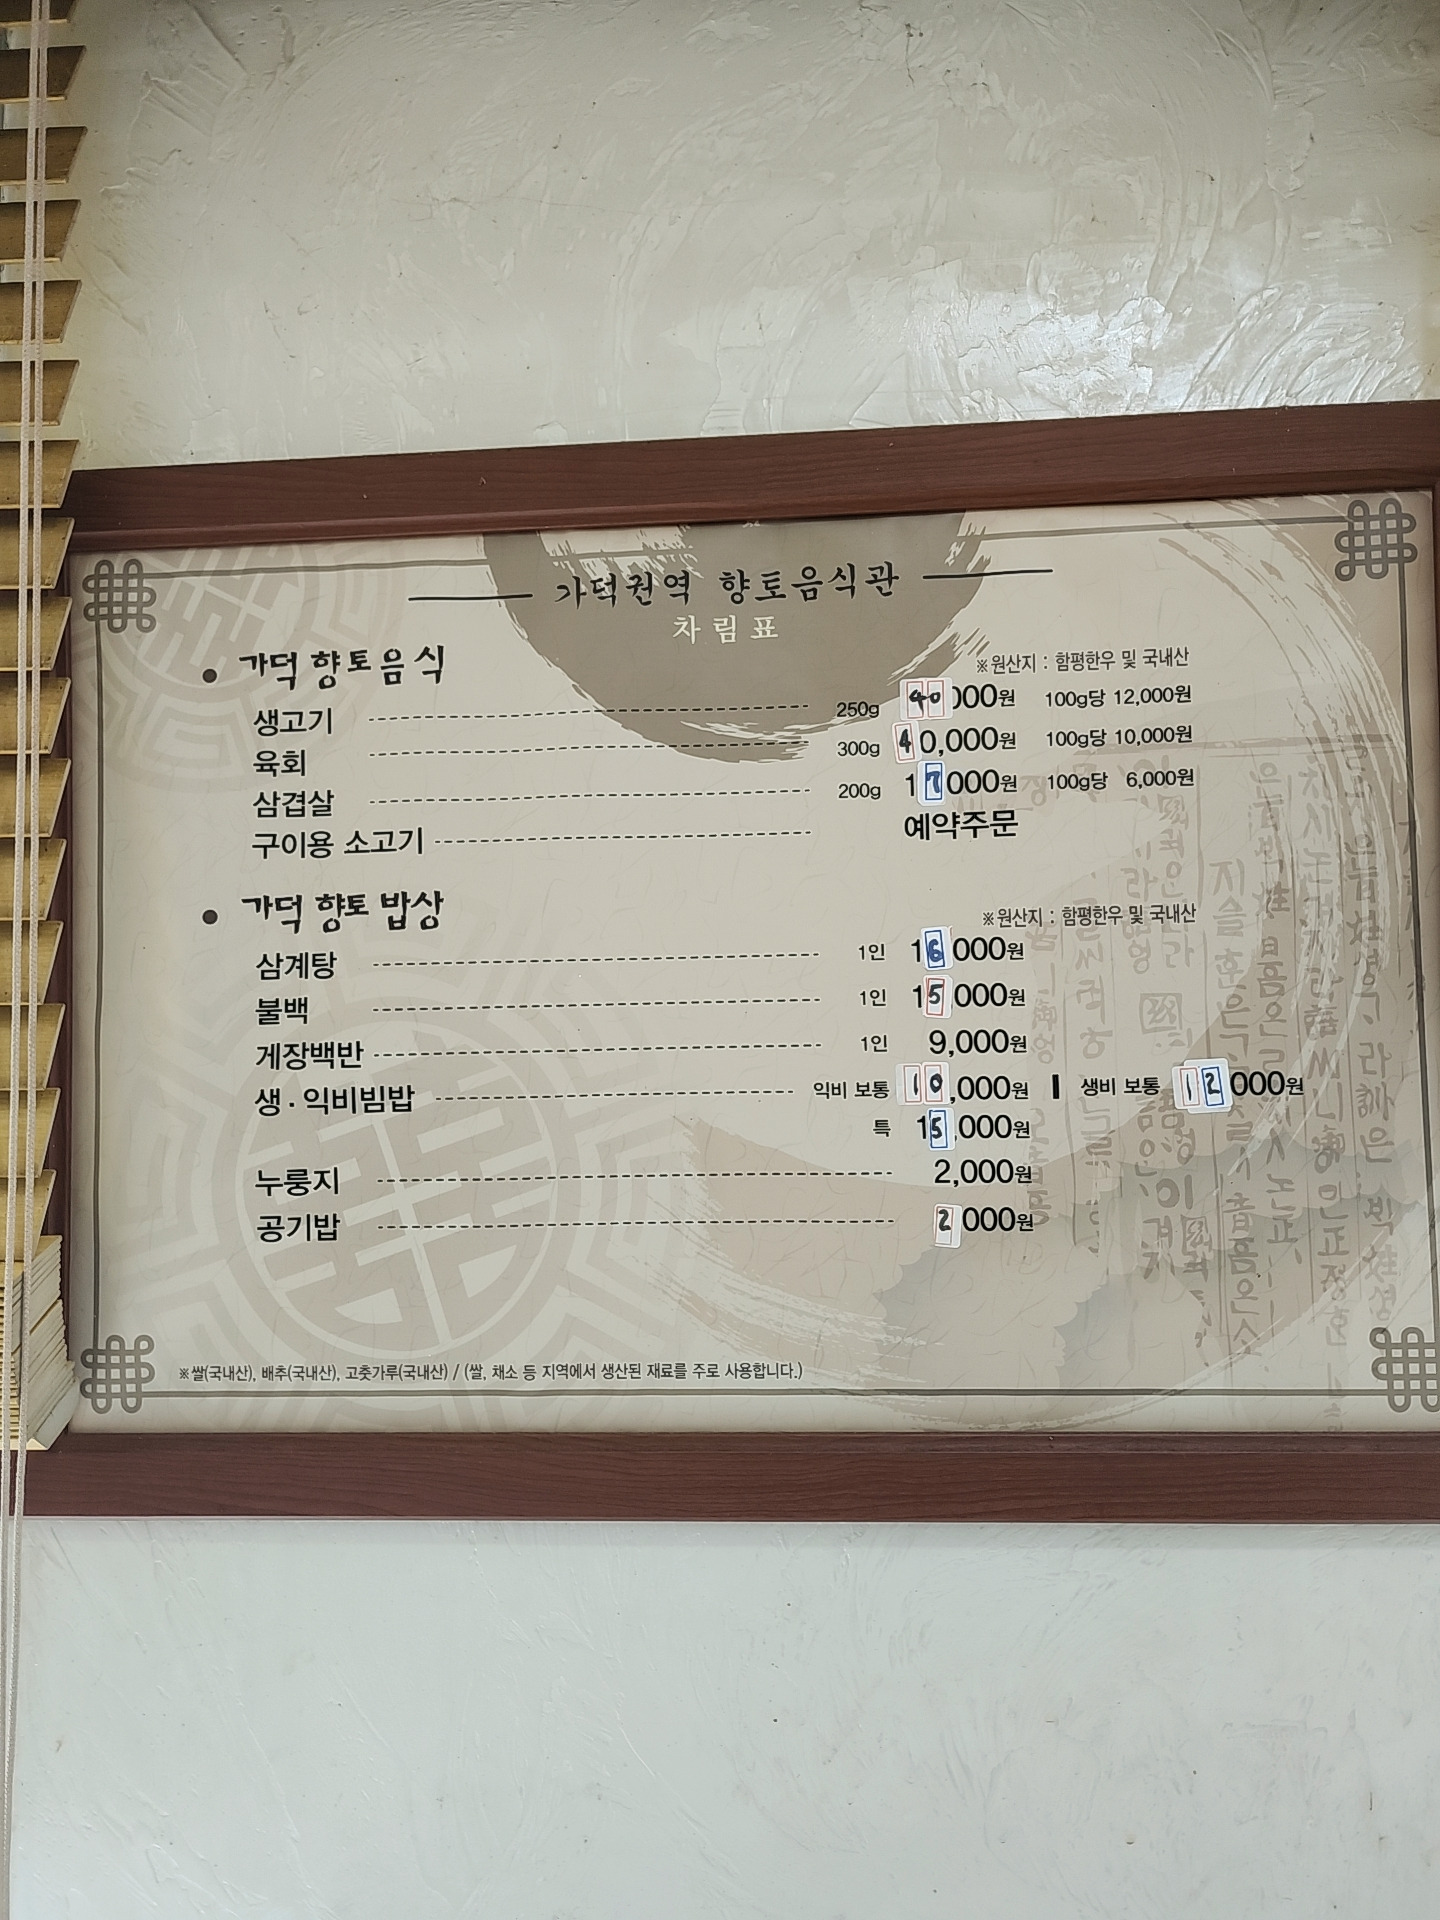 가덕권역 향토음식관
차림표
가덕 향토음식
※원산지 : 함평한우 및 국내산
생고기 250g 40000원 100g당 12,000원
육회 300g 40,000원 100g당 10,000원
삼겹살 200g 17000원 100g당 6,000원
구이용 소고기 예약주문
가덕 향토 밥상
※원산지 : 함평한우 및 국내산
삼계탕 1인 16,000원
불백 1인 15,000원
게장백반 1인 9,000원
생·익비빔밥 익비 보통 10,000원 | 생비 보통 12000원
특 15,000원
누룽지 2,000원
공기밥 2000원
※쌀(국내산), 배추(국내산), 고춧가루(국내산) / (쌀, 채소 등 지역에서 생산된 재료를 주로 사용합니다.)